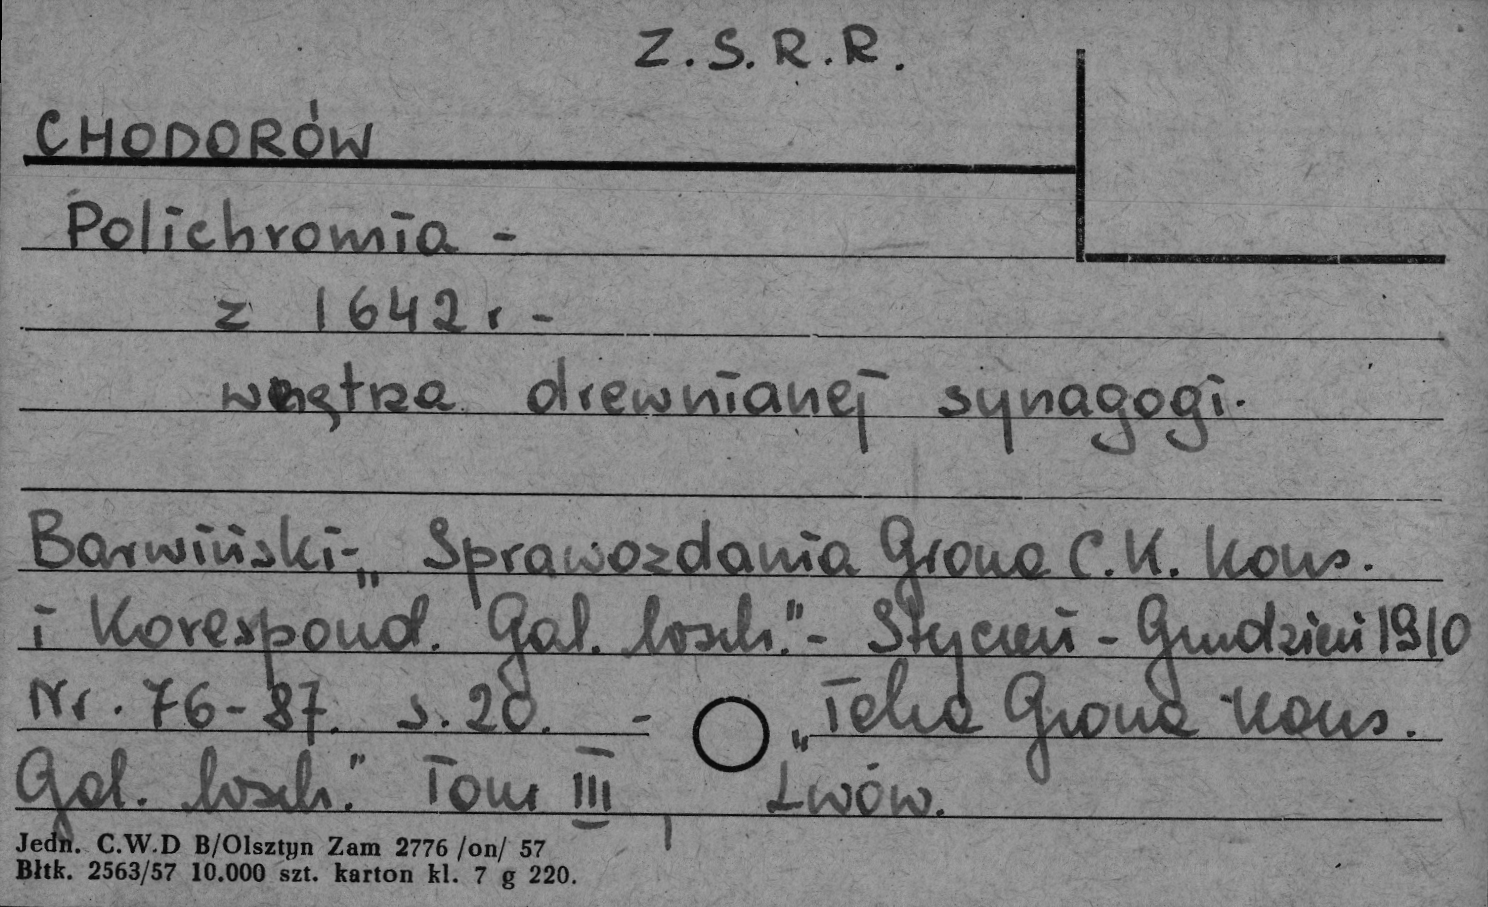 Z.S.R.R.
CHODORÓW
Polichromia -
z 1642r -
wnętrza drewnianej synagogi.
Barwiński-„ Sprawozdania Grona C.K. Kons.
i Korespond. Gal. wsch."- Styczeń - Grudzień 1910
Nr. 76-87. s. 20. - „Teka Grona Kons.
Gal. wsch." Tom III Lwów.
Jedn. C.W.D B/Olsztyn Zam 2776 /on/ 57
Błtk. 2563/57 10.000 szt. karton kl. 7 g 220.